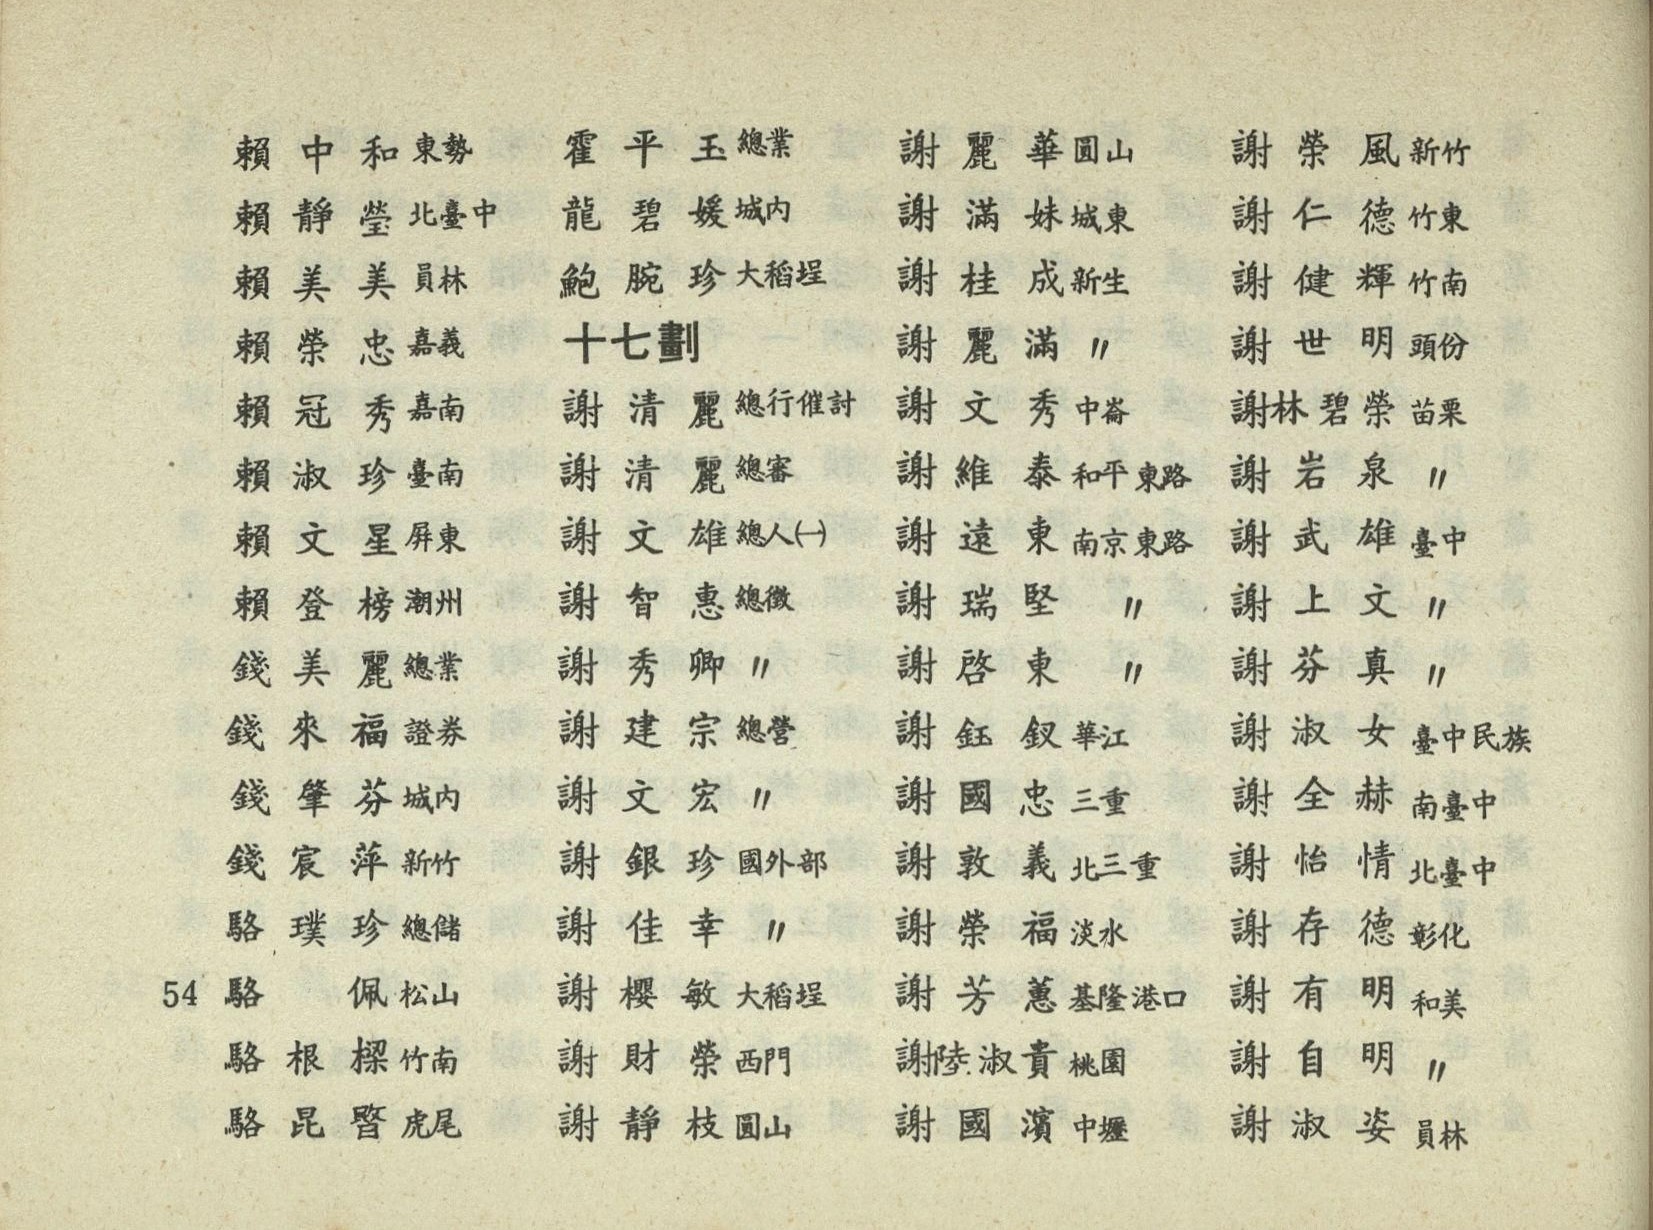 賴中和 東勢
賴靜瑩 北臺中
賴美美 員林
賴榮忠 嘉義
賴冠秀 嘉南
賴淑珍 臺南
賴文星 屏東
賴登榜 潮州
錢美麗 總業
錢來福 證券
錢肇芬 城內
錢宸萍 新竹
駱璞珍 總儲
駱佩 松山
駱根樑 竹南
駱昆暋 虎尾
霍平玉 總業
龍碧媛 城內
鮑腕珍 大稻埕
十七劃
謝清麗 總行催討
謝清麗 總審
謝文雄 總人㈠
謝智惠 總徵
謝秀卿 〃
謝建宗 總營
謝文宏 〃
謝銀珍 國外部
謝佳幸 〃
謝櫻敏 大稻埕
謝財榮 西門
謝靜枝 圓山
謝麗華 圓山
謝滿妹 城東
謝桂成 新生
謝麗滿 〃
謝文秀 中崙
謝維泰 和平東路
謝遠東 南京東路
謝瑞堅 〃
謝啓東 〃
謝鈺釵 華江
謝國忠 三重
謝敦義 北三重
謝榮福 淡水
謝芳蕙 基隆港口
謝陸淑貴 桃園
謝國濱 中壢
謝榮風 新竹
謝仁德 竹東
謝健輝 竹南
謝世明 頭份
謝林碧榮 苗栗
謝岩泉 〃
謝武雄 臺中
謝上文 〃
謝芬真 〃
謝淑女 臺中民族
謝全赫 南臺中
謝怡情 北臺中
謝存德 彰化
謝有明 和美
謝自明 〃
謝淑姿 員林
54